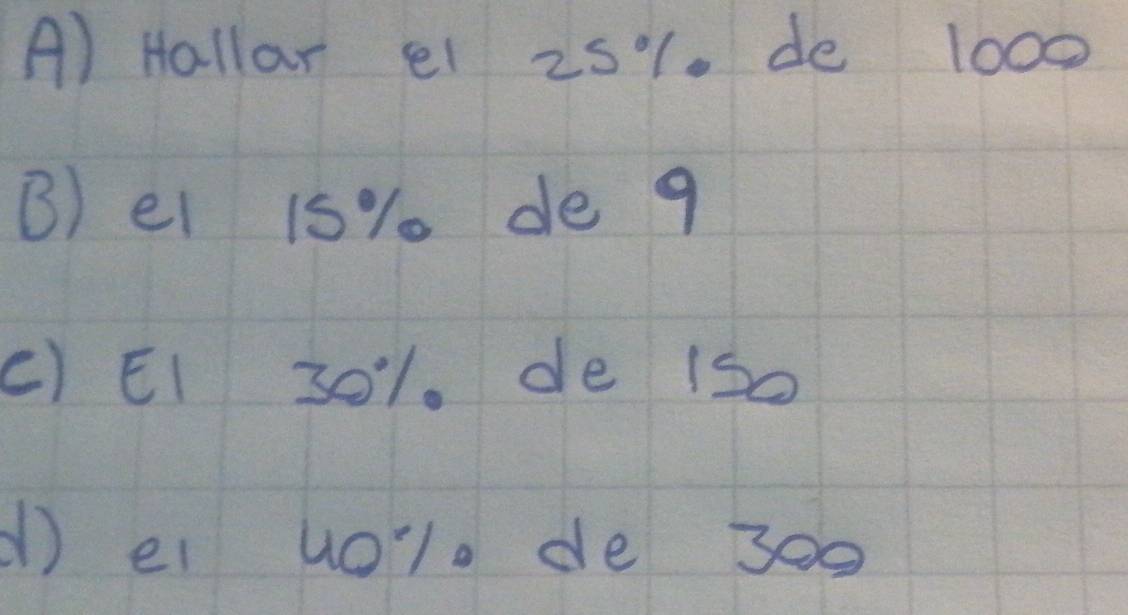 A) Hallar el 25% de 1000
B) el 15% de 9
C) El 30% de 150
d) el 40% de 300